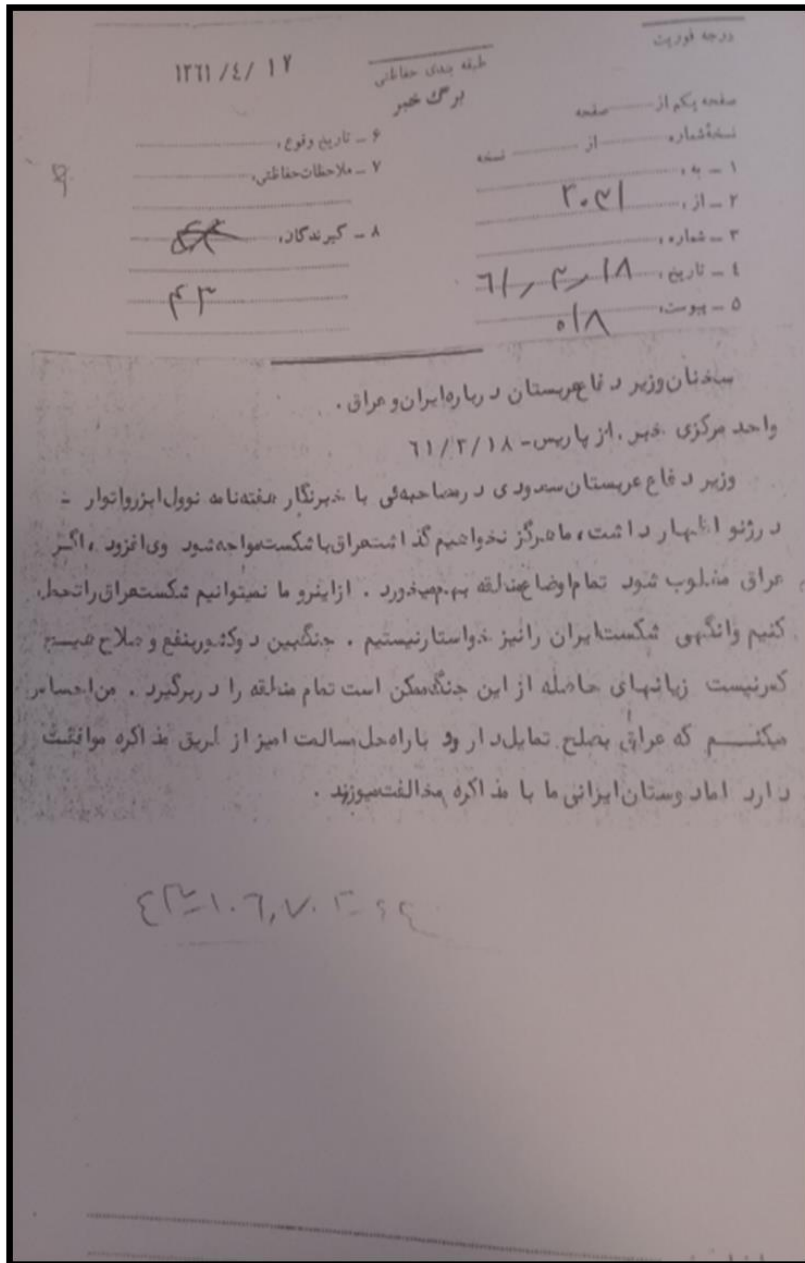 درجه فوریت
طبقه بندی حفاظتی
۱۳۶۱/٤/ ۱۷
برگ خبر
صفحه یکم از صفحه
نسخهٔ شماره از نسخه
۱ ــ به،
۲ ــ از،
۳ ــ شماره،
٤ ــ تاریخ، ۶۱٫۳٫۱۸
۵ ــ پیوست،
۶ ــ تاریخ وقوع،
۷ ــ ملاحظات حفاظتی،
۸ ــ گیرندگان،
۴۳
سخنان وزیر دفاع عربستان درباره ایران و عراق .
واحد مرکزی خبر . از پاریس - ۶۱/۳/۱۸
وزیر دفاع عربستان سعودی در مصاحبه‌ئی با خبرنگار هفته‌نامه نوول ابزرواتوار -
در ژنو اظهار داشت، ما هرگز نخواهیم گذاشت عراق با شکست مواجه شود وی افزود ، اگر
عراق مغلوب شود تمام اوضاع منطقه بهم میخورد . از اینرو ما نمیتوانیم شکست عراق را تحمل
کنیم وانگهی شکست ایران را نیز خواستار نیستیم . جنگ بین دو کشور بنفع و صلاح هیچ
کس نیست زیانهای حاصله از این جنگ ممکن است تمام منطقه را دربرگیرد . من احساس
میکنم که عراق بصلح تمایل دارد و با راه حل مسالمت امیز از طریق مذاکره موافقت
دارد اما دوستان ایرانی ما با مذاکره مخالفت میورزند .